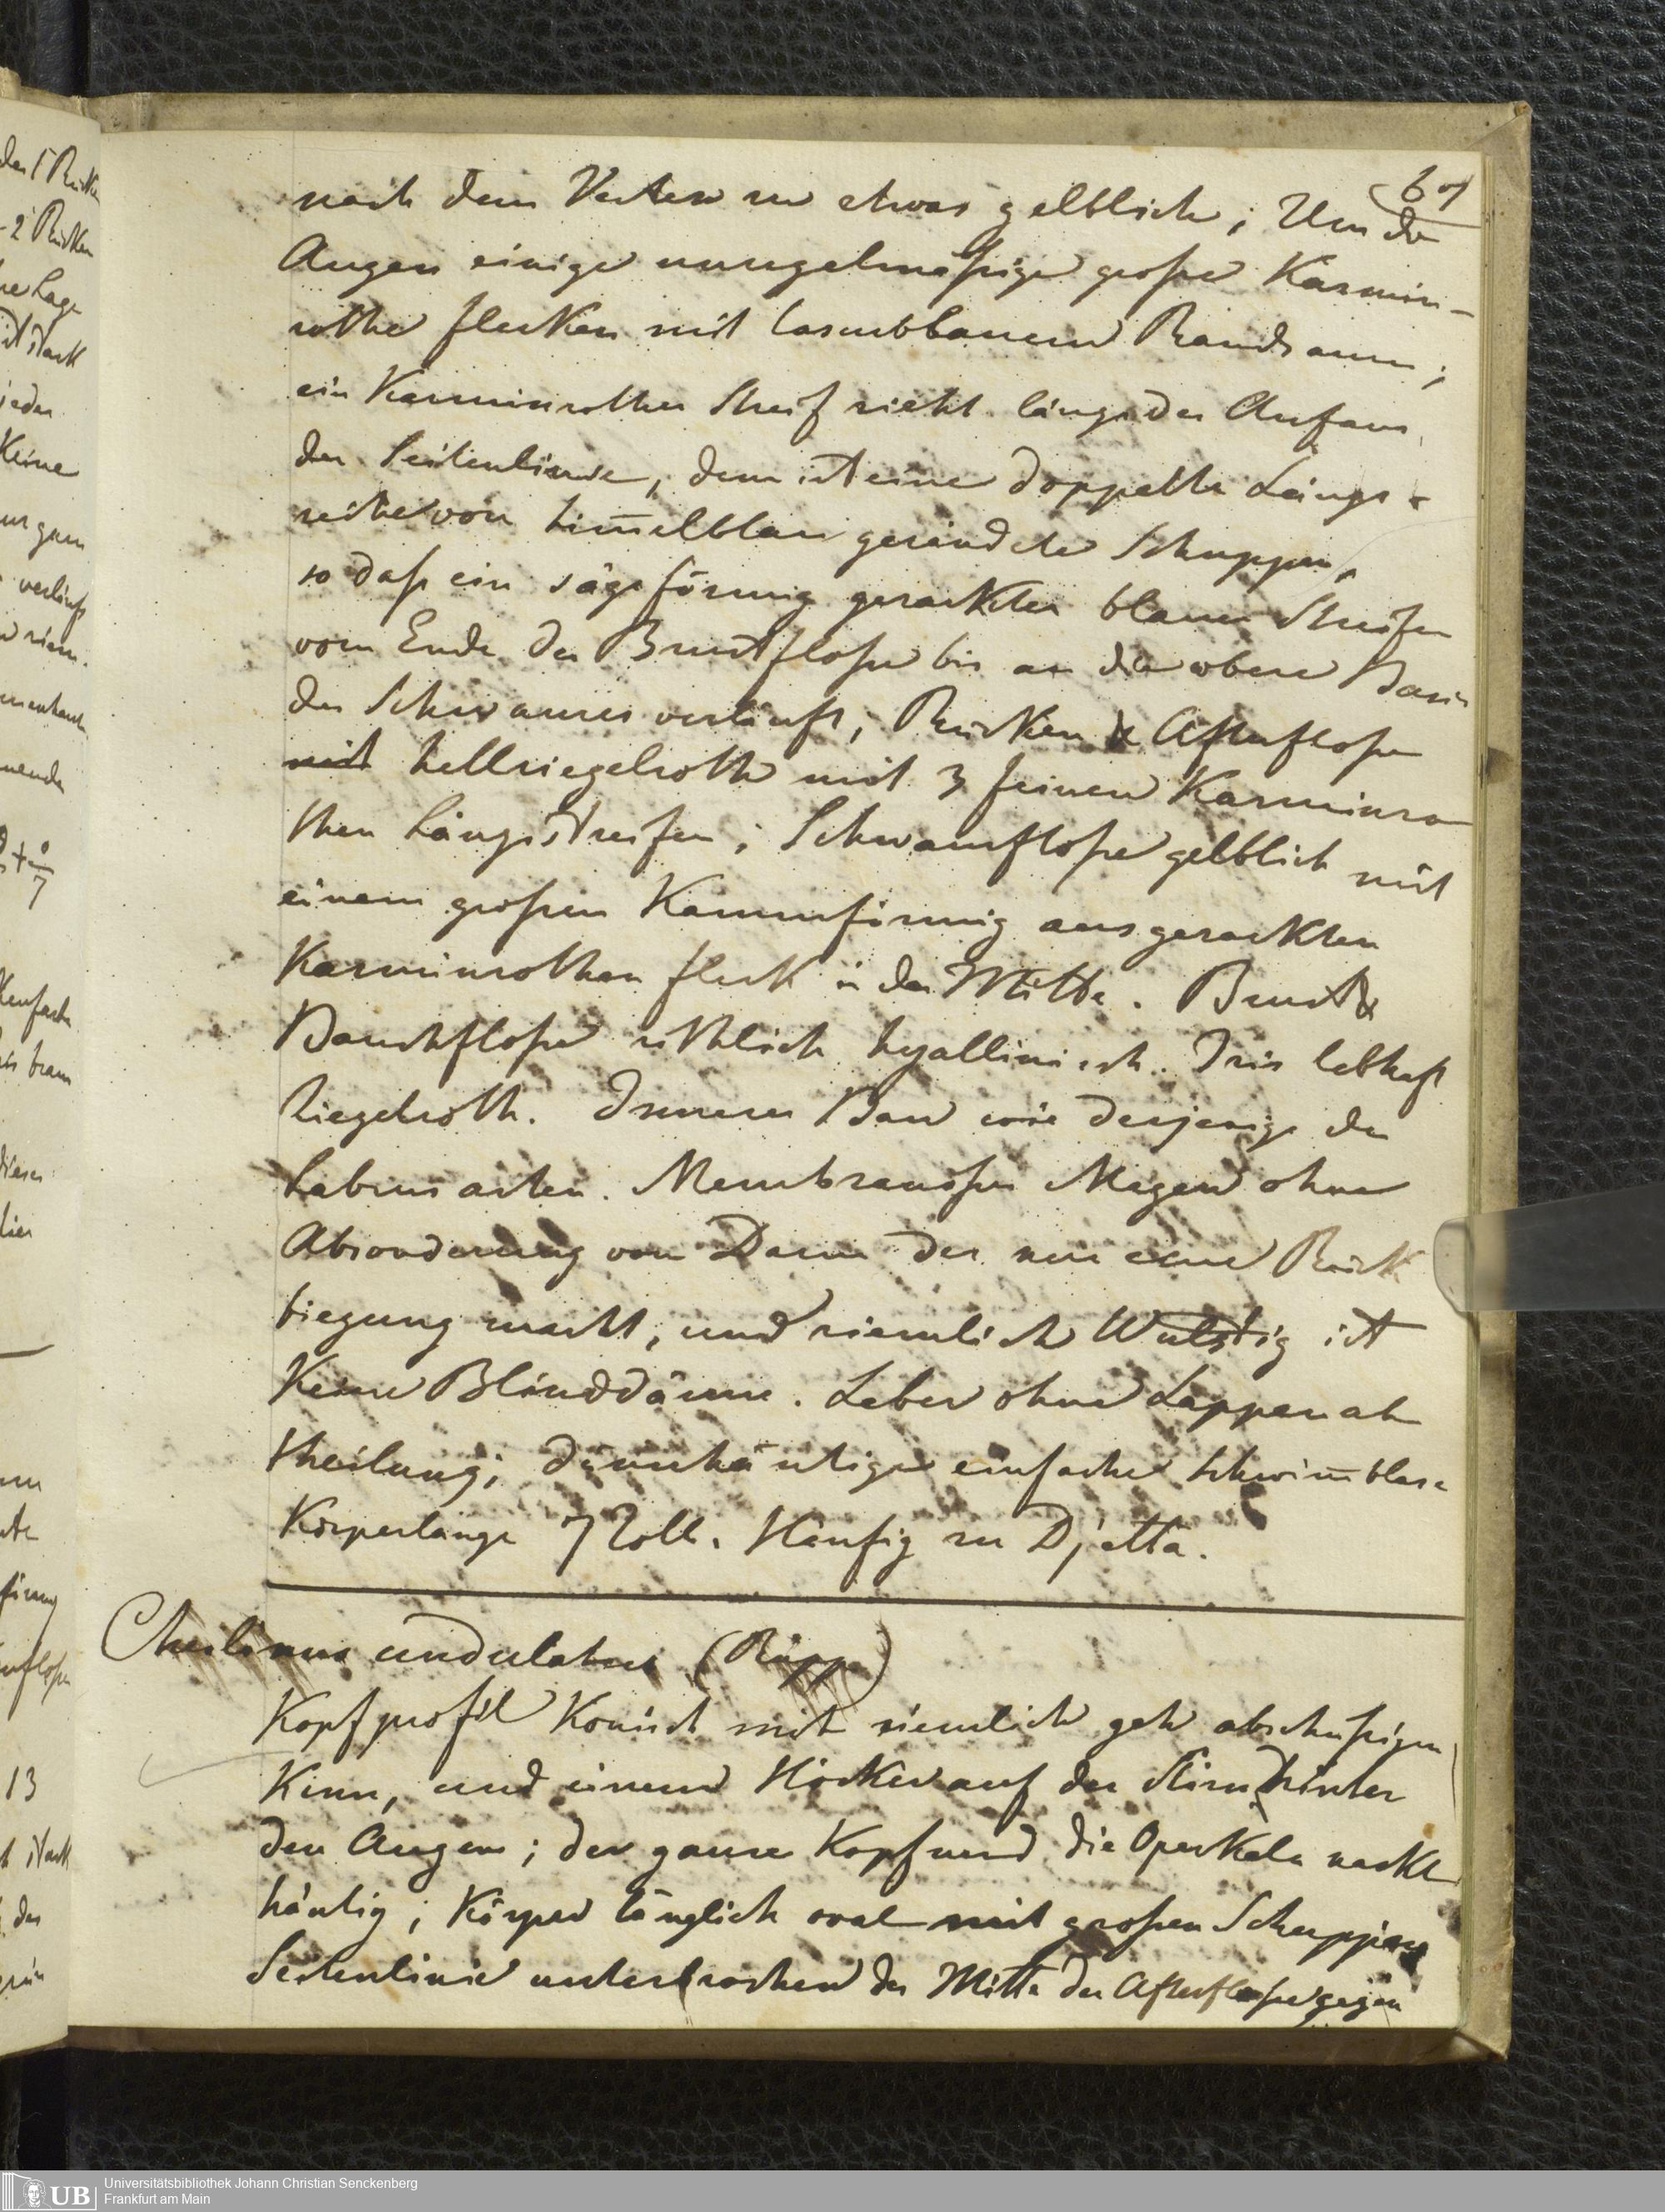 67
nach dem Vertex zu etwas gelblich; Um die
Augen einige unregelmäßige große Karmin-
rothe flecken mit lasurblauem Randsaum;
ein Karminrother Streif zieht längs des Anfang
der Seitenlinie, dann ist eine doppelte Längs-
reihe von him̅elblau gerändete Schuppen,
so daß ein sägeförmig gezackter blauer Streifen
vom Ende der Brustfloße bis an die obere Basis
des Schwanzes verläuft; Rücken & Afterfloße
mit hellziegelroth mit 3 feinen Karminro
then Längsstreifen; Schwanzfloße gelblich mit
einem großen Kammförmig ausgezackten
Karminrothen fleck in der Mitte. Brust &
Bauchfloße röthlich hyallinisch. Iris lebhaft
Ziegelroth. Innerer Bau wie derjenige der
Labrusarten. Membranoser Magen ohne
Absonderung vom Darm der nur eine Rück
biegung macht, und ziemlich Wulstig ist
Keine Blinddärme. Leber ohne Lappenab
theilung; dünnhäutige einfache Schwim̅blase
Körperlänge 7 Zoll. Häufig zu Djetta.
Cheilinus undulatus (Rüpp)
Kopfprofil Konisch mit ziemlich abschüßigen
Kinn, und einem Höcker auf der Stirn hinter
den Augen; der ganze Kopf und die Operkeln nackt
häutig; Körper länglich oval mit großen Schuppen
Seitenlinie unterbrochen der Mitte der Afterfloße gegen